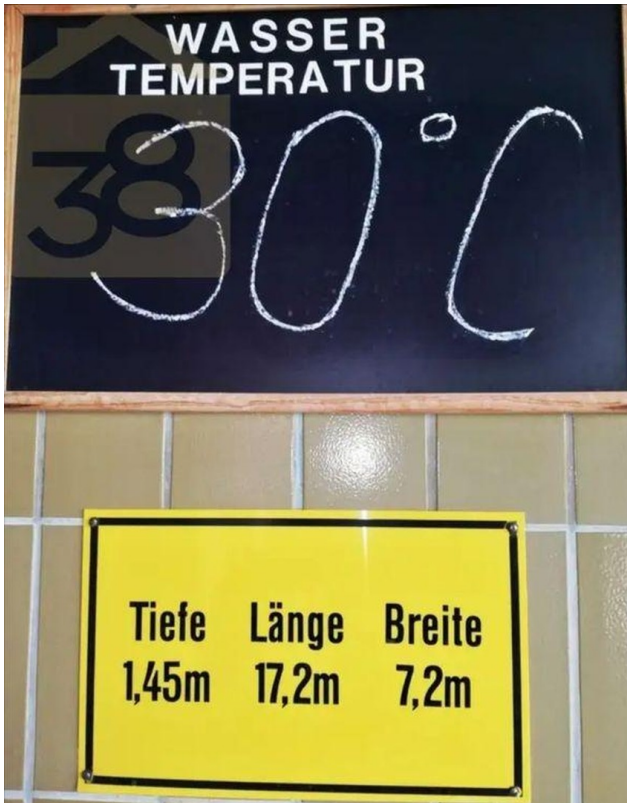 WASSER
TEMPERATUR
38
30°C
Tiefe Länge Breite
1,45m 17,2m 7,2m